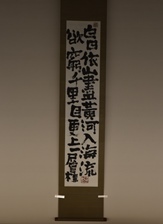 白日依山盡黃河入海流
欲窮千里目更上一層樓